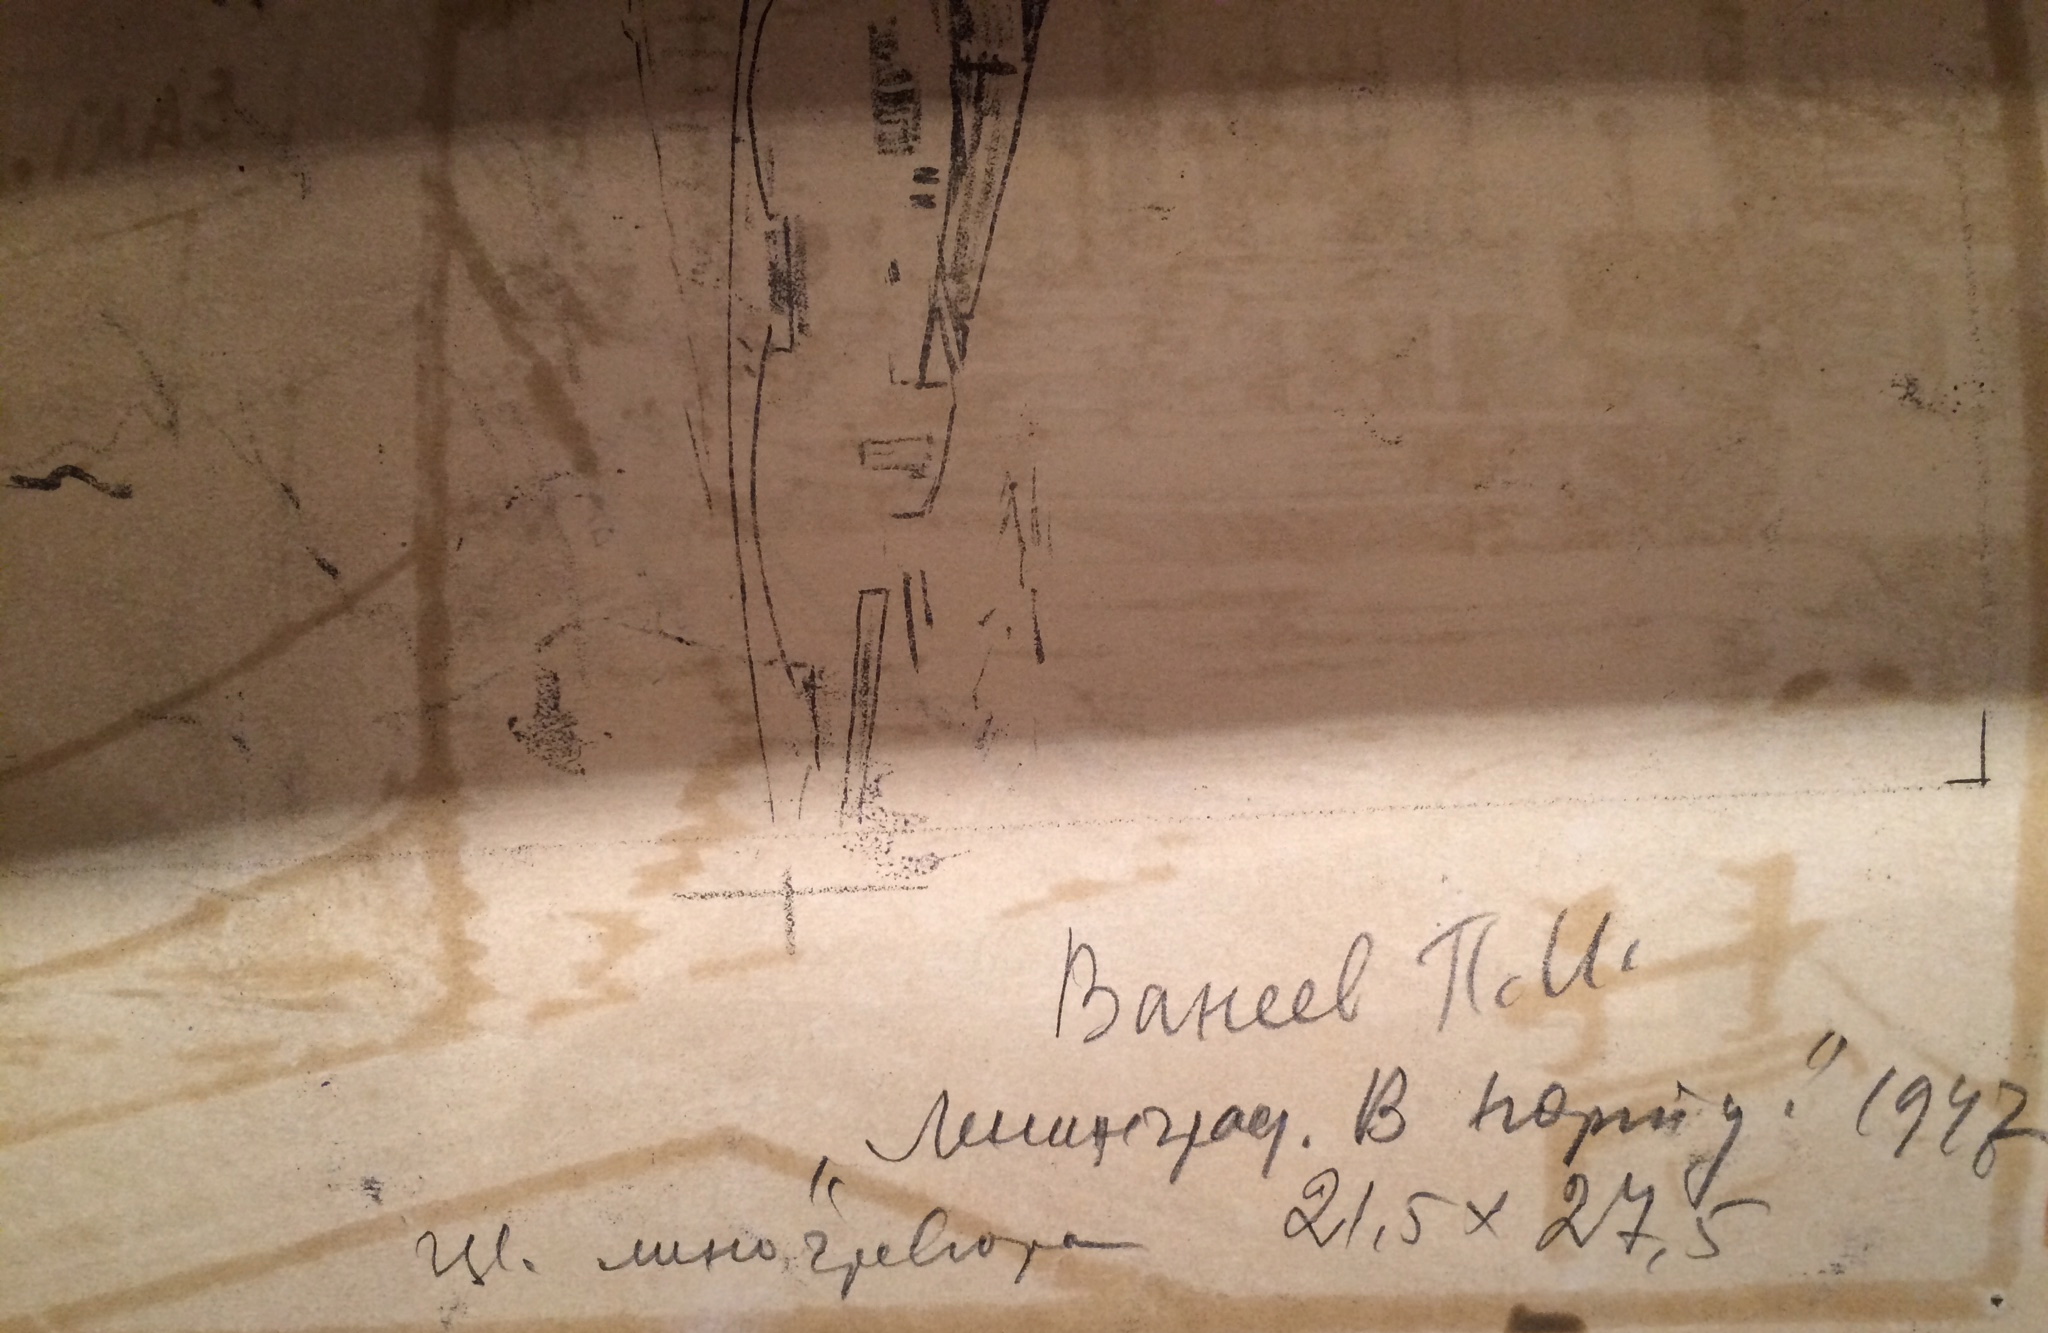 Ванеев П. И.
"Ленинград. В порту." 1947
цв. линогравюра 21,5 x 27,5